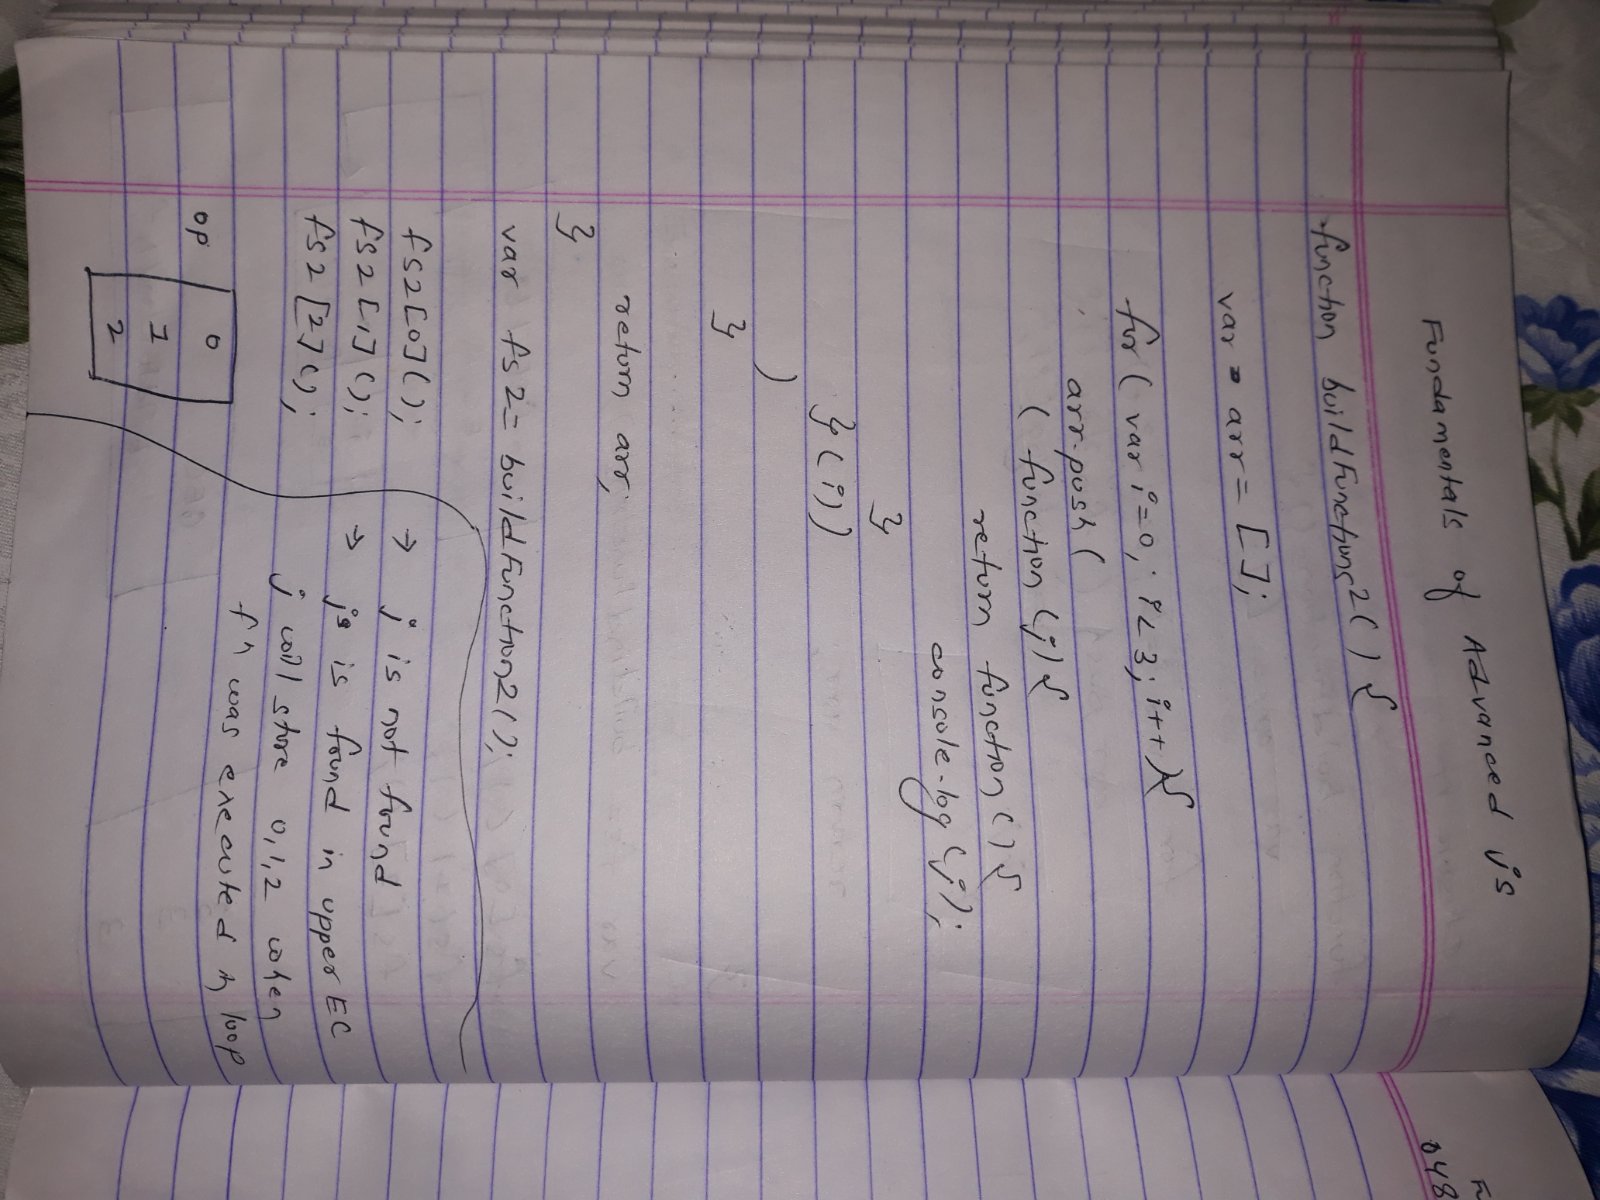 Fundamentals of Advanced js
function buildFunctions2() {
var arr = [];
for ( var i=0; i<3; i++ ){
arr.push (
( function (j) {
return function() {
console.log (j);
}
} (i))
)
}
return arr;
}
var fs2 = buildFunction2();
fs2[0]();
fs2[1]();
fs2[2]();
→ j is not found
→ j is found in upper EC
j will store 0,1,2 when
fn was executed in loop
op
0
1
2
048